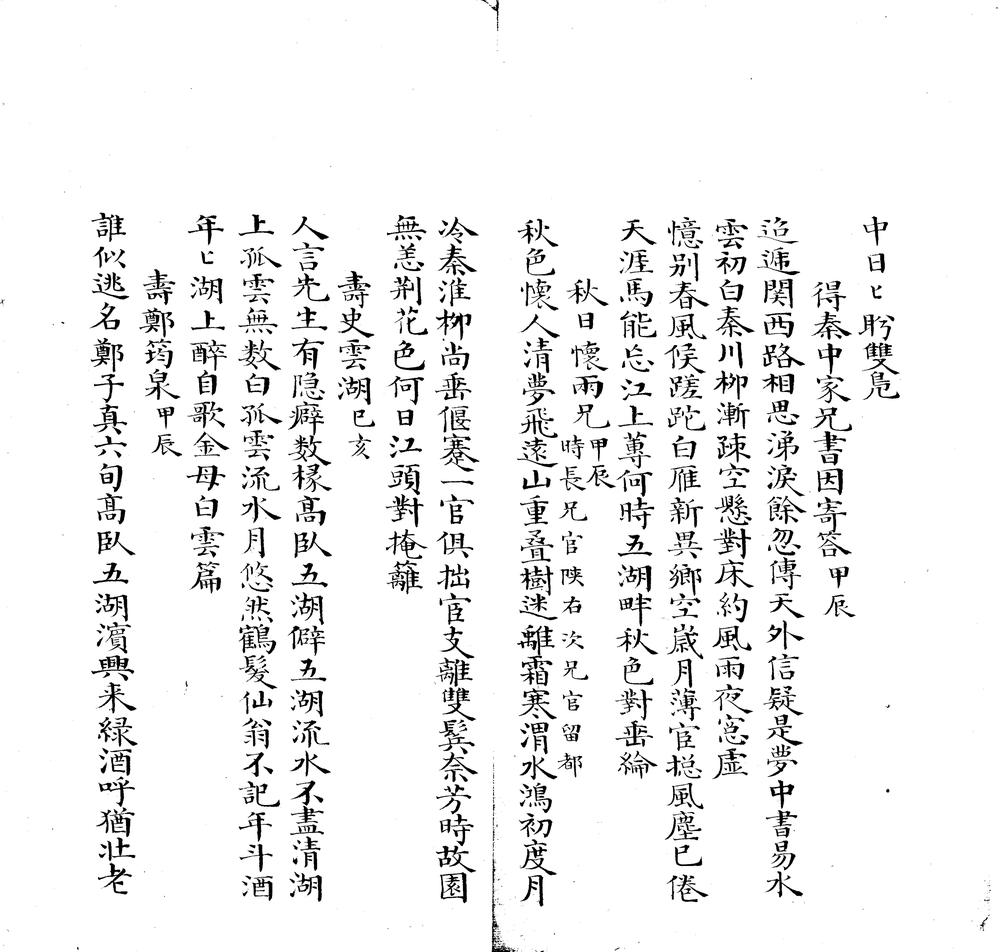 中日〻盻雙鳬
得秦中家兄書因寄答甲辰
迢遞関西路相思涕淚餘忽傳天外信疑是夢中書易水
雲初白秦川柳漸疎空懸對床約風雨夜窓虛
憶別春風候蹉跎白雁新異鄉空嵗月薄宦揔風塵已倦
天涯馬能忘江上蓴何時五湖畔秋色對垂綸
秋日懷兩兄甲辰時長兄官陝右次兄官留都
秋色懷人清夢飛遠山重叠樹迷離霜寒渭水鴻初度月
冷秦淮柳尚垂偃蹇一官俱拙宦支離雙鬂奈芳時故園
無恙荆花色何日江頭對掩籬
壽史雲湖己亥
人言先生有隐癖数椽髙臥五湖僻五湖流水不盡清湖
上孤雲無数白孤雲流水月悠然鶴髮仙翁不記年斗酒
年〻湖上醉自歌金母白雲篇
壽鄭筠泉甲辰
誰似逃名鄭子真六旬髙臥五湖濵興来緑酒呼猶壮老